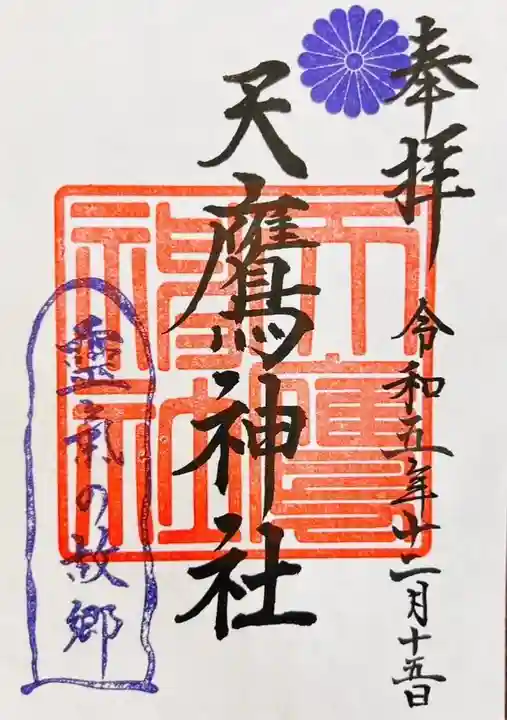 奉拝
令和五年十二月十五日
天鷹神社
天鷹神社
靈氣の故郷